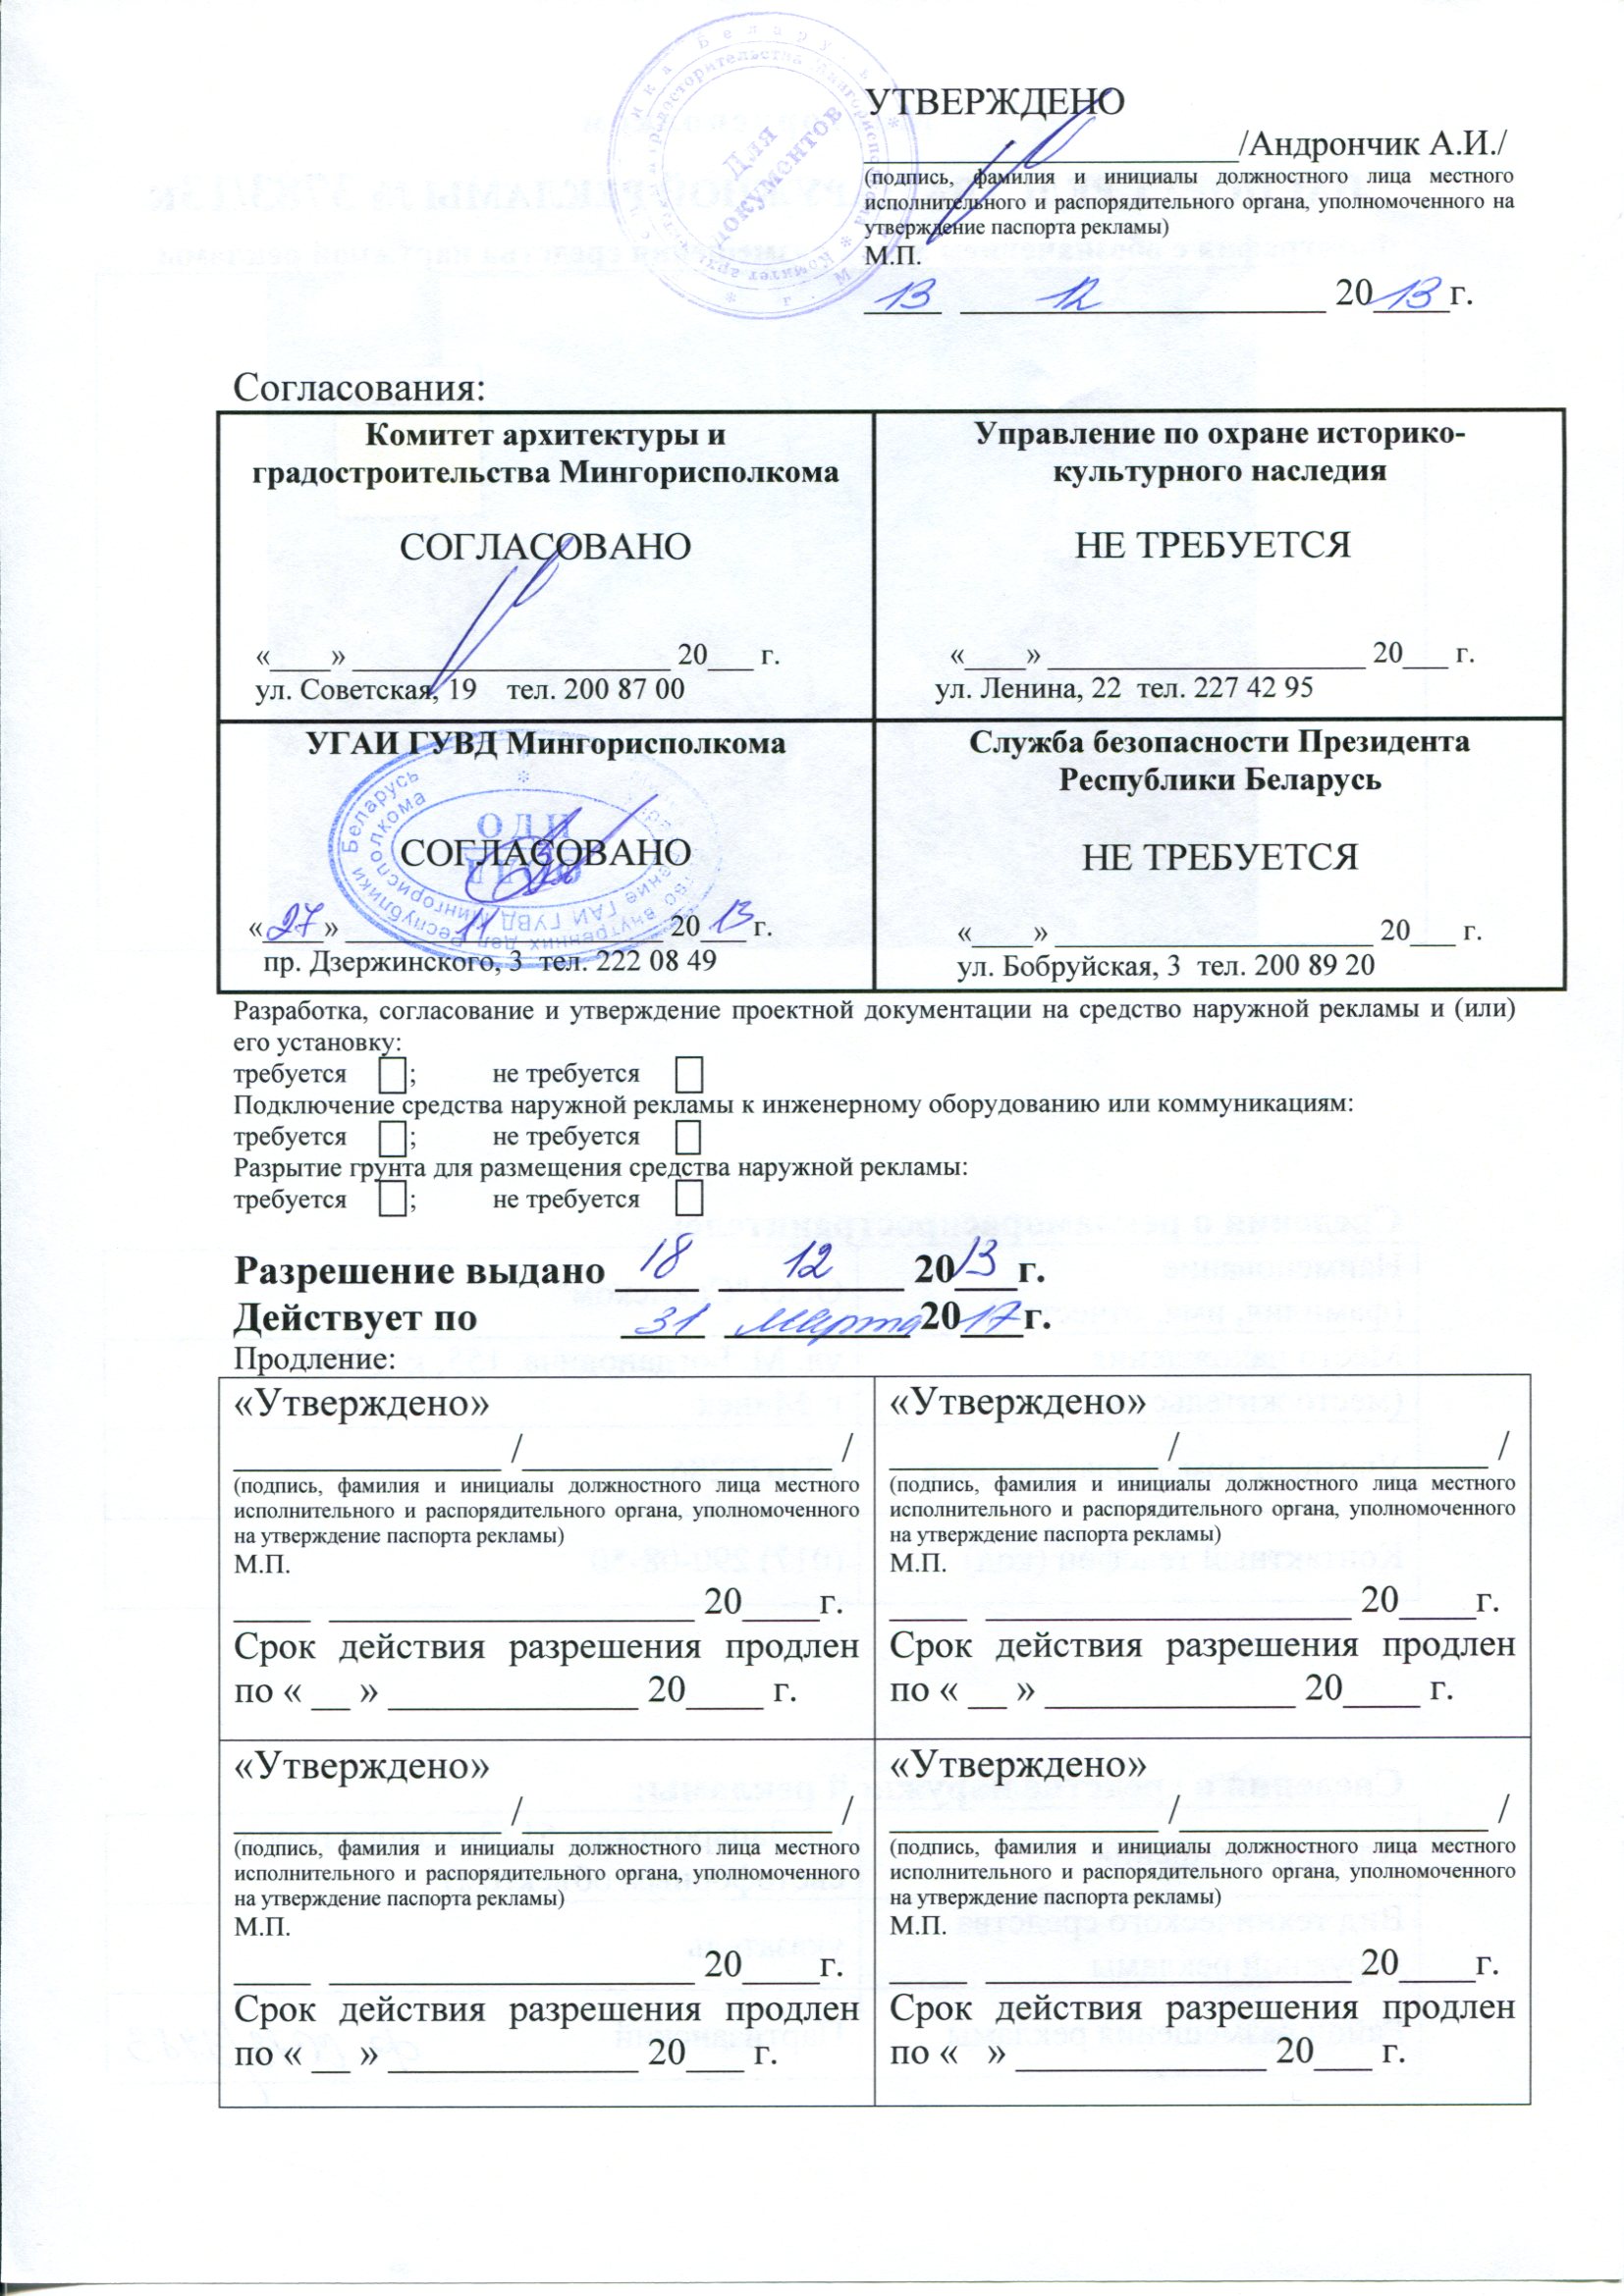 УТВЕРЖДЕНО
____________________/Андрончик А.И./
(подпись, фамилия и инициалы должностного лица местного
исполнительного и распорядительного органа, уполномоченного на
утверждение паспорта рекламы)
М.П.
13 12 2013г.
Для
документов
Согласования:
Комитет архитектуры и
градостроительства Мингорисполкома
СОГЛАСОВАНО
«____» _____________________ 20___ г.
ул. Советская, 19 тел. 200 87 00
Управление по охране историко-
культурного наследия
НЕ ТРЕБУЕТСЯ
«____» _____________________ 20___ г.
ул. Ленина, 22 тел. 227 42 95
УГАИ ГУВД Мингорисполкома
СОГЛАСОВАНО
«27» 11 2013 г.
пр. Дзержинского, 3 тел. 222 08 49
Служба безопасности Президента
Республики Беларусь
НЕ ТРЕБУЕТСЯ
«____» _____________________ 20___ г.
ул. Бобруйская, 3 тел. 200 89 20
Разработка, согласование и утверждение проектной документации на средство наружной рекламы и (или)
его установку:
требуется ; не требуется
Подключение средства наружной рекламы к инженерному оборудованию или коммуникациям:
требуется ; не требуется
Разрытие грунта для размещения средства наружной рекламы:
требуется ; не требуется
Разрешение выдано 18 12 2013г.
Действует по 31 марта 2017г.
Продление:
«Утверждено»
______________ /________________ /
(подпись, фамилия и инициалы должностного лица местного
исполнительного и распорядительного органа, уполномоченного
на утверждение паспорта рекламы)
М.П.
____ ___________________ 20____г.
Срок действия разрешения продлен
по « __ » _____________ 20____ г.
«Утверждено»
______________ /________________ /
(подпись, фамилия и инициалы должностного лица местного
исполнительного и распорядительного органа, уполномоченного
на утверждение паспорта рекламы)
М.П.
____ ___________________ 20____г.
Срок действия разрешения продлен
по « __ » _____________ 20____ г.
«Утверждено»
______________ /________________ /
(подпись, фамилия и инициалы должностного лица местного
исполнительного и распорядительного органа, уполномоченного
на утверждение паспорта рекламы)
М.П.
____ ___________________ 20____г.
Срок действия разрешения продлен
по « __ » _____________ 20___ г.
«Утверждено»
______________ /________________ /
(подпись, фамилия и инициалы должностного лица местного
исполнительного и распорядительного органа, уполномоченного
на утверждение паспорта рекламы)
М.П.
____ ___________________ 20____г.
Срок действия разрешения продлен
по « » _____________ 20___ г.